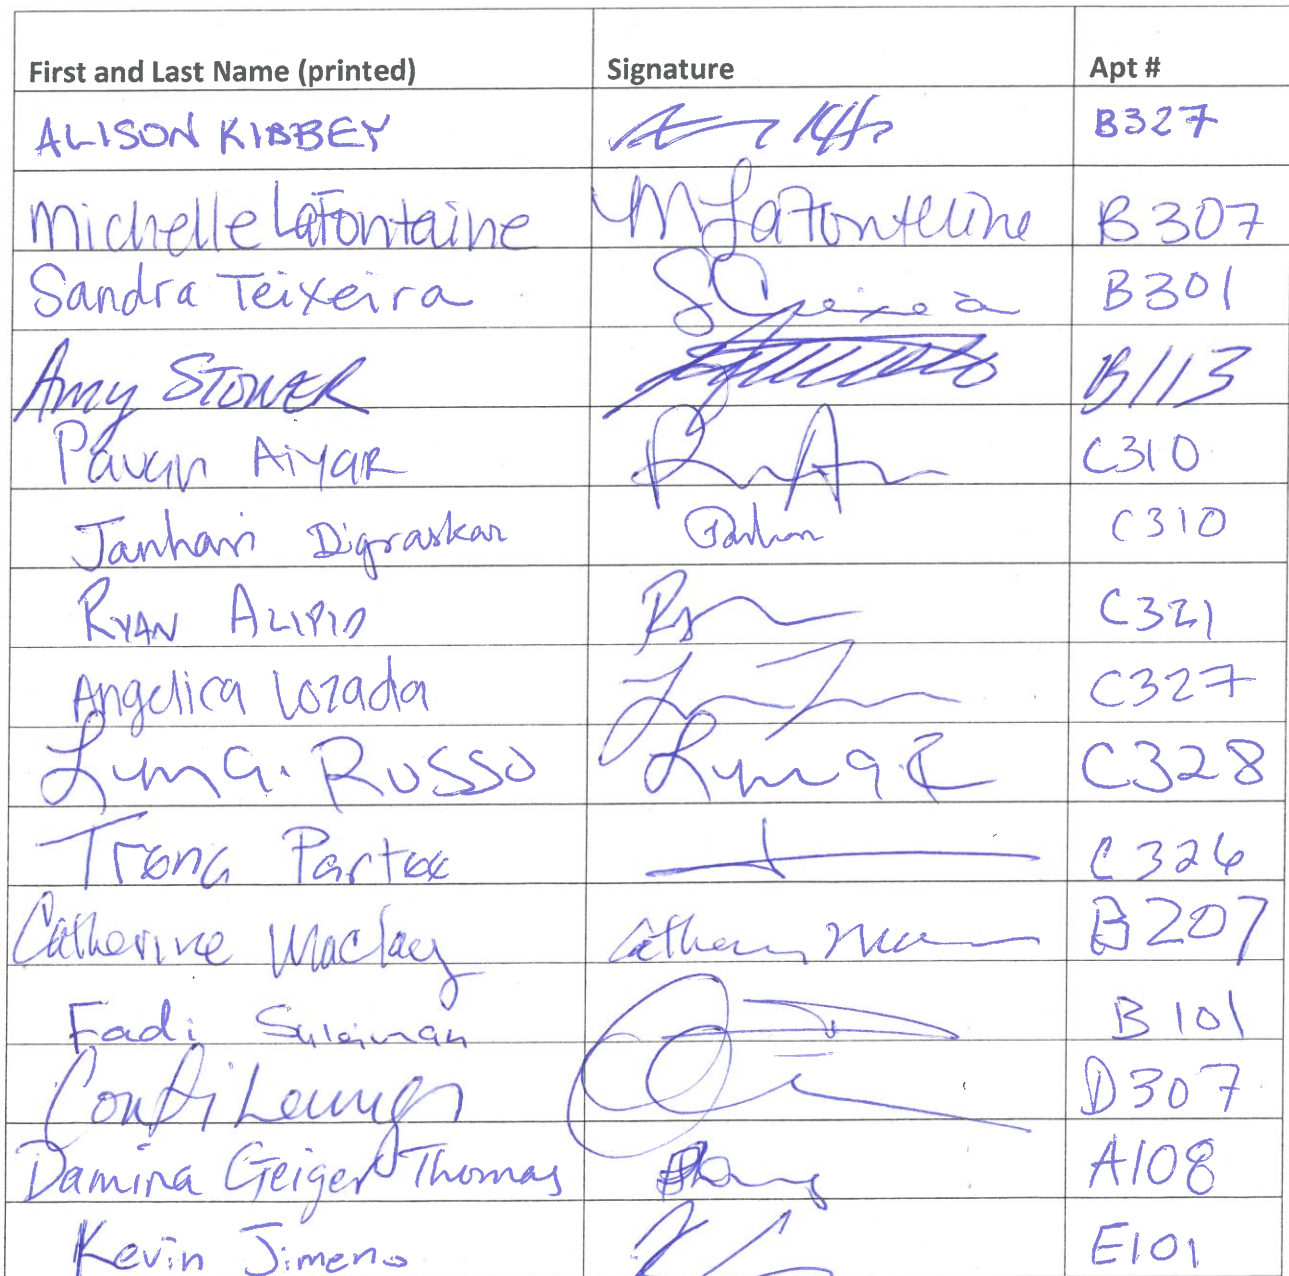 First and Last Name (printed) Signature Apt #
ALISON KIBBEY B327
Michelle LaFontaine M LaFontaine B307
Sandra Teixeira S Teixeira B301
Amy STOWER B113
Pavan AiyaR C310
Janhavi Digraskar C310
RYAN ALIPIO C321
Angelica Lozada C327
Lynn G. RUSSO Lynn G R C328
Partee C326
Catherine Maclay Catherine B207
Fadi Suleiman B101
D307
Damina Geiger Thomas A108
Kevin Jimeno E101